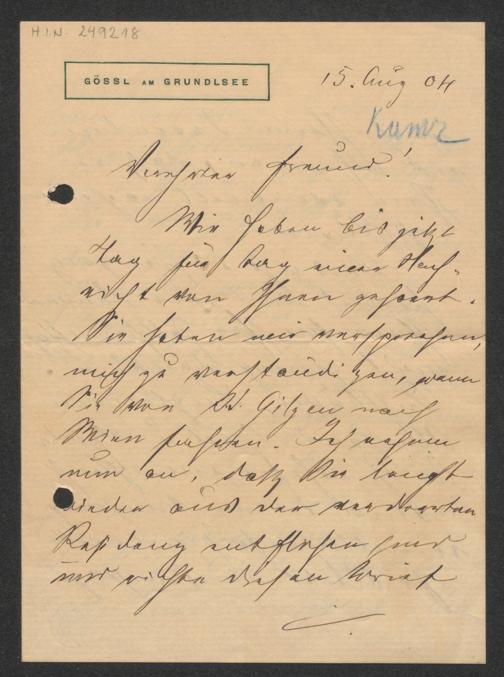 H.I.N. 249218
GÖSSL AM GRUNDLSEE
15. Aug 04
Verehrter Freund!
Wir haben bis jetzt
Tag für Tag einer Nach-
richt von Ihnen geharrt.
Sie haben mir versprochen,
mich zu verständigen, wenn
Sie von St. Gilgen nach
Wien fahren. Ich nehme
nun an, daß Sie längst
wieder aus der verdorrten
Residenz entflohen sind
und richte diesen Brief